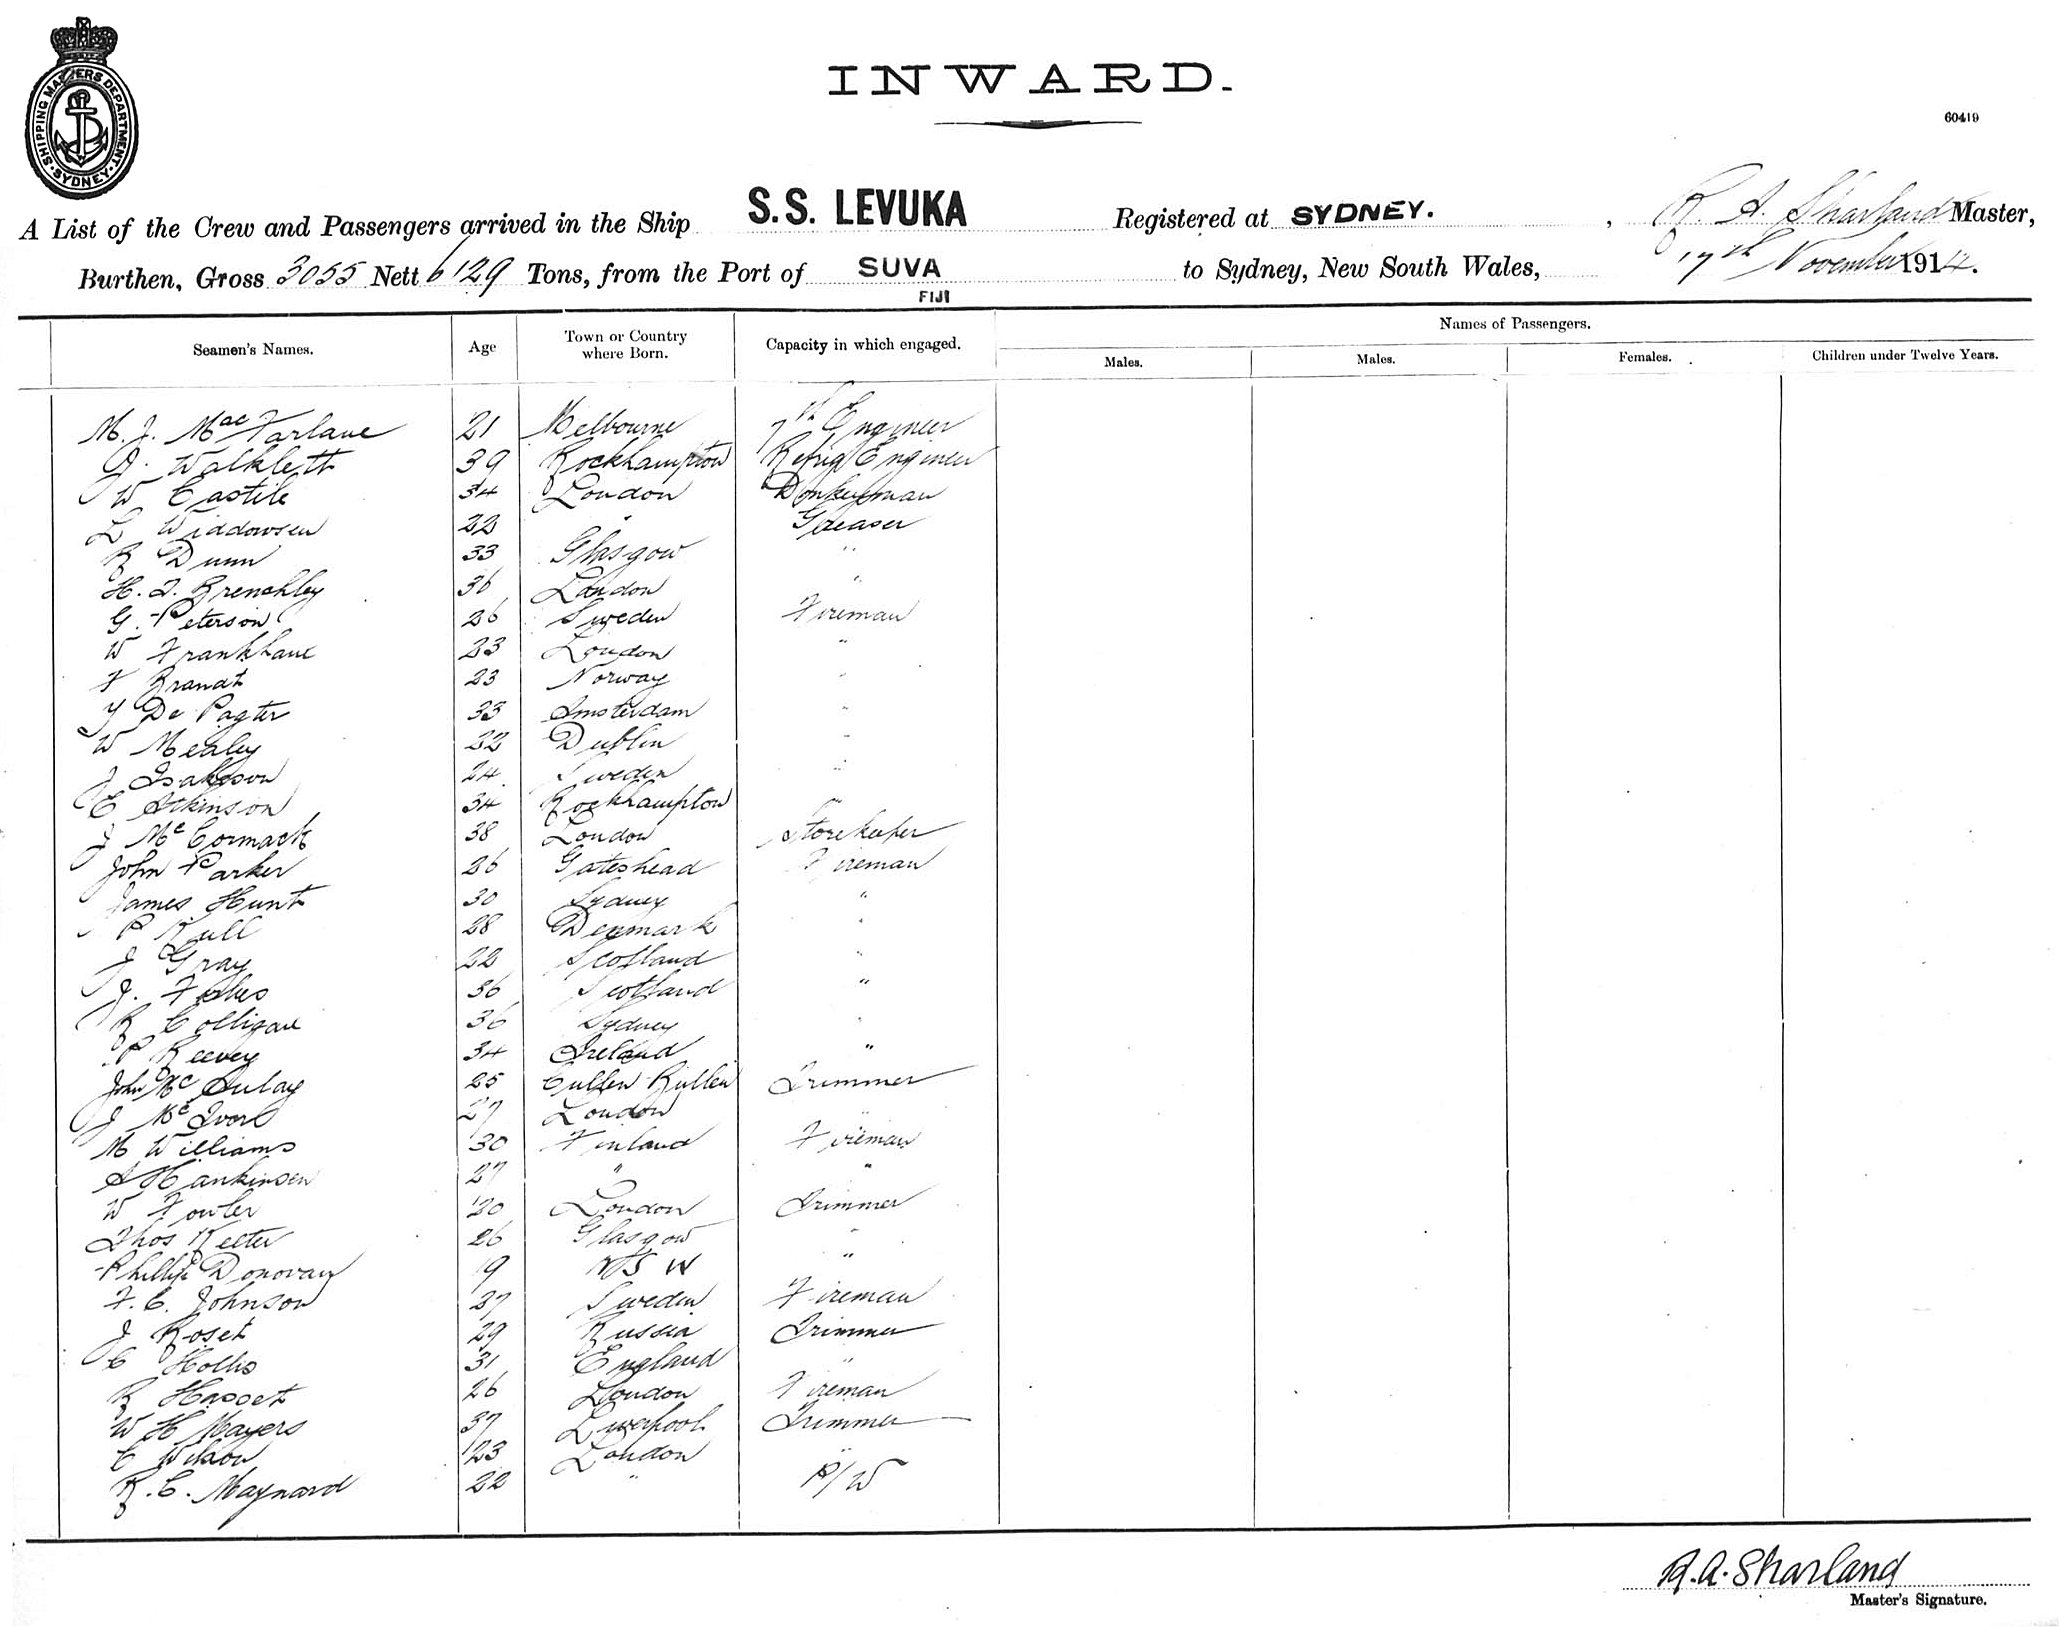 SHIPPING MASTERS DEPARTMENT
SYDNEY
INWARD.
60419
A List of the Crew and Passengers arrived in the Ship S.S. LEVUKA Registered at SYDNEY. , R. A. Sharland Master,
Burthen, Gross 3055 Nett 6129 Tons, from the Port of SUVA FIJI to Sydney, New South Wales, 17th November 1914.
Seamen's Names. Age Town or Country where Born. Capacity in which engaged. Names of Passengers.
Males. Males. Females. Children under Twelve Years.
M. J. MacFarlane 21 Melbourne 7th Engineer
A. Walklett 39 Rockhampton Refrig Engineer
W Castile 34 London Donkeyman
L Widdowsen 22 " Greaser
R Dunn 33 Glasgow "
H. J. Brenchley 36 London "
G. Peterson 26 Sweden Fireman
W Frankhane 23 London "
F Brandt 23 Norway "
J De Pagter 33 Amsterdam "
W Mealey 32 Dublin "
J Isakson 24 Sweden "
E Atkinson 34 Rockhampton "
J McCormack 38 London Storekeeper
John Parker 26 Gateshead Fireman
James Hunt 30 Sydney "
P Kull 28 Denmark "
J Gray 22 Scotland "
J. 36 Scotland "
R Colligan 36 Sydney "
P Reevey 34 Ireland "
John McAulay 25 Cullen Bullen Trimmer
J McIvor 27 London "
M Williams 30 Finland Fireman
A Hankinsen 27 " "
W Fowler 30 London Trimmer
Thos Keeter 26 Glasgow "
Phillip Donovan 19 NSW "
F. C. Johnson 37 Sweden Fireman
J Roset 29 Russia Trimmer
C Hollis 31 England "
R Hasset 26 London Fireman
W H Mayers 37 Liverpool Trimmer
C Wilson 23 London "
R. C. Maynard 22 " P/W
R.A. Sharland
Master's Signature.